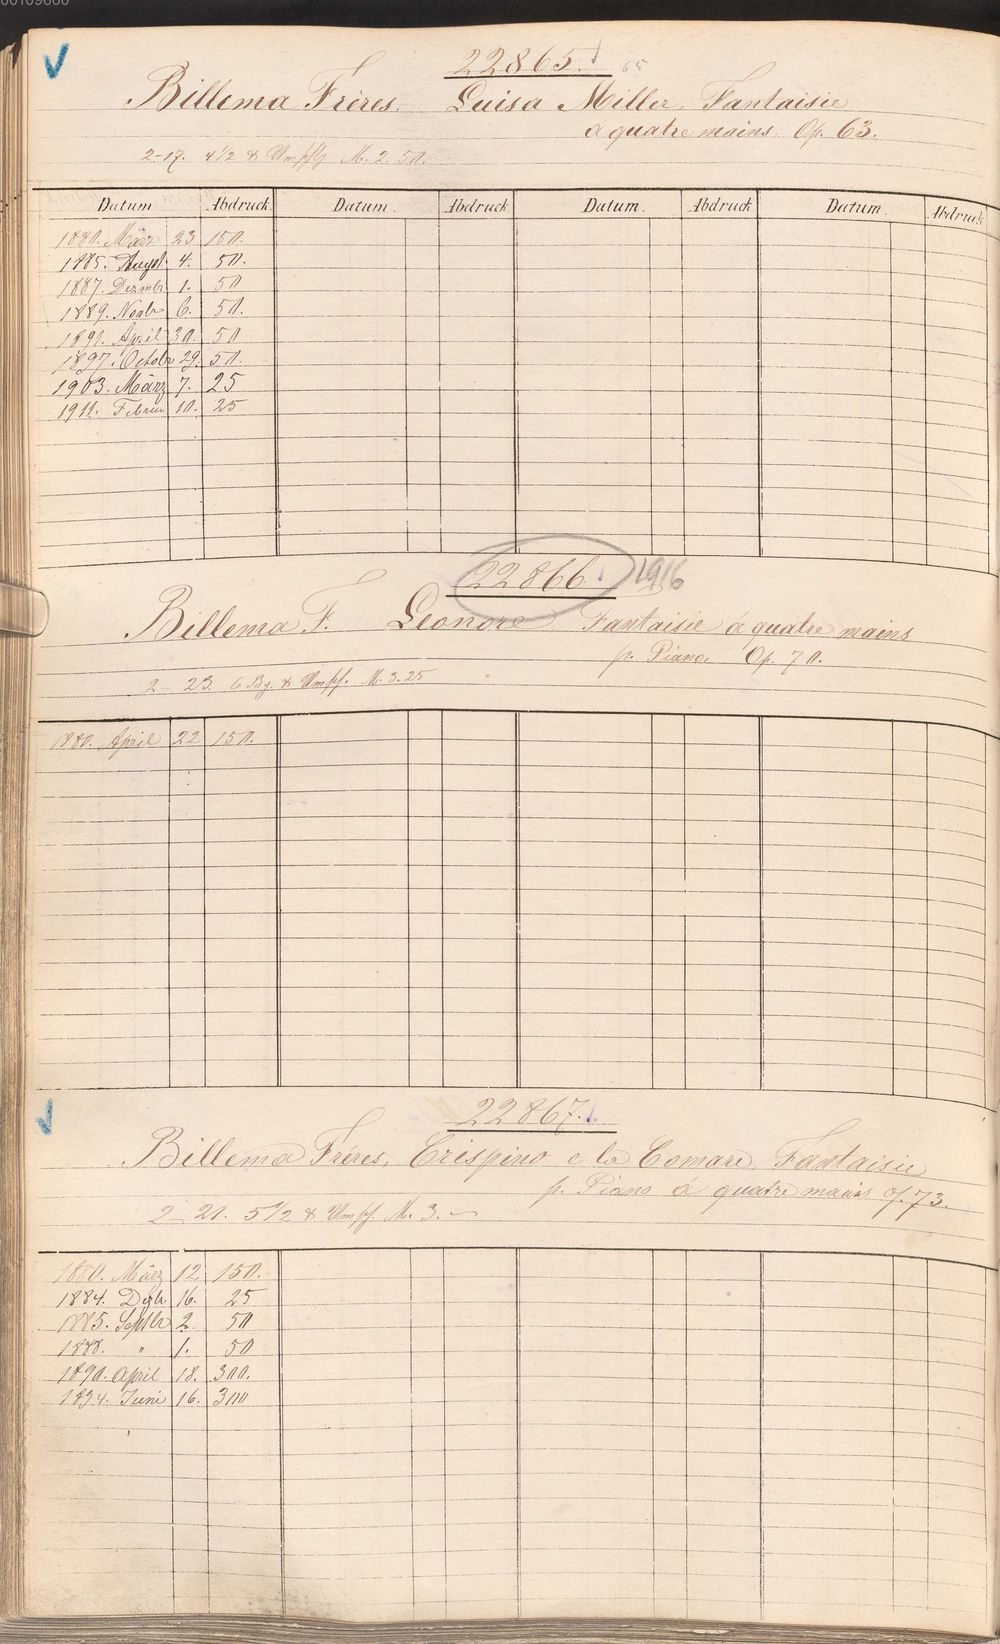 22865. 65
Billema Frères. Luisa Miller. Fantaisie
à quatre mains. Op. 63.
2-17. 4 1/2 & M. 2. 50.
Datum Abdruck Datum. Abdruck Datum. Abdruck Datum. Abdruck
1880. März 23 150.
1885. Augst. 4. 50.
1887. Dezmbr 1. 50
1889. Novbr 6. 50.
1891. April 30. 50
1897. Octobr 29. 50.
1903. März 7. 25
1911. Februar 10. 25
22866. 1916
Billema F. Leonore Fantaisie à quatre mains
p. Piano. Op. 70.
2-23. 6 Bg. & M. 3.25
1880. April 22 150.
22867.
Billema Fréres. Crispino e la Comare. Fantaisie
p. Piano à quatre mains op. 73.
2-21. 5 1/2 & M. 3.-
1880. März 12 150.
1884. Dezbr 16. 25
1885. Septbr 2. 50
1888. " 1. 50
1890. April 18. 300.
1894. Juni 16. 300